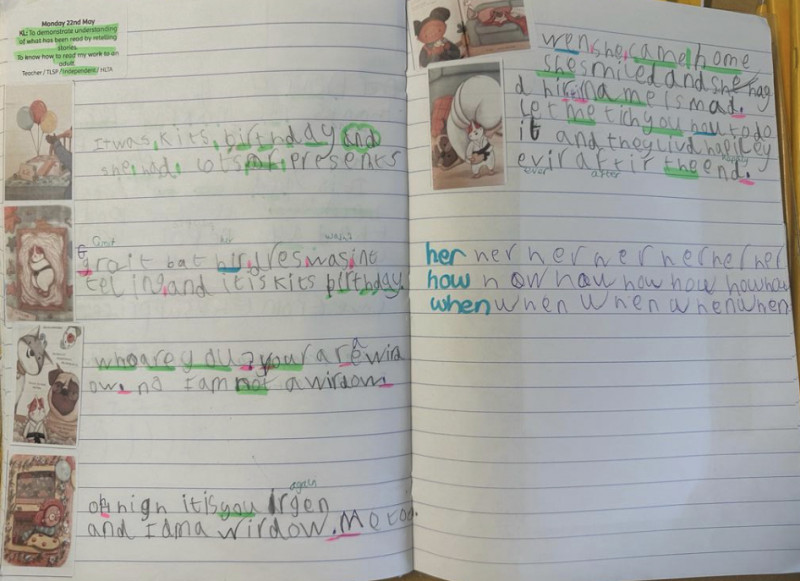 Monday 22nd May
KL: To demonstrate understanding
of what has been read by retelling
stories.
To know how to read my work to an
adult
Teacher / TLSP / Independent / HLTA
It was kits birthday and
she had lots of presents
wasint
tel ing and it is kits birthday.
her
wasn't
who are you? your are a wird
ow. no I am not a wirdow.
again
oh high it is you irgen
and I am a wirdow. Me too.
wen she came home
she smiled and she hag
d hir name is mad.
let me tich you hau to do
it and they livd hapiley
happy
evir aftir the end.
ever after
her her her her her her her her
how how how how how how how
when when when when when